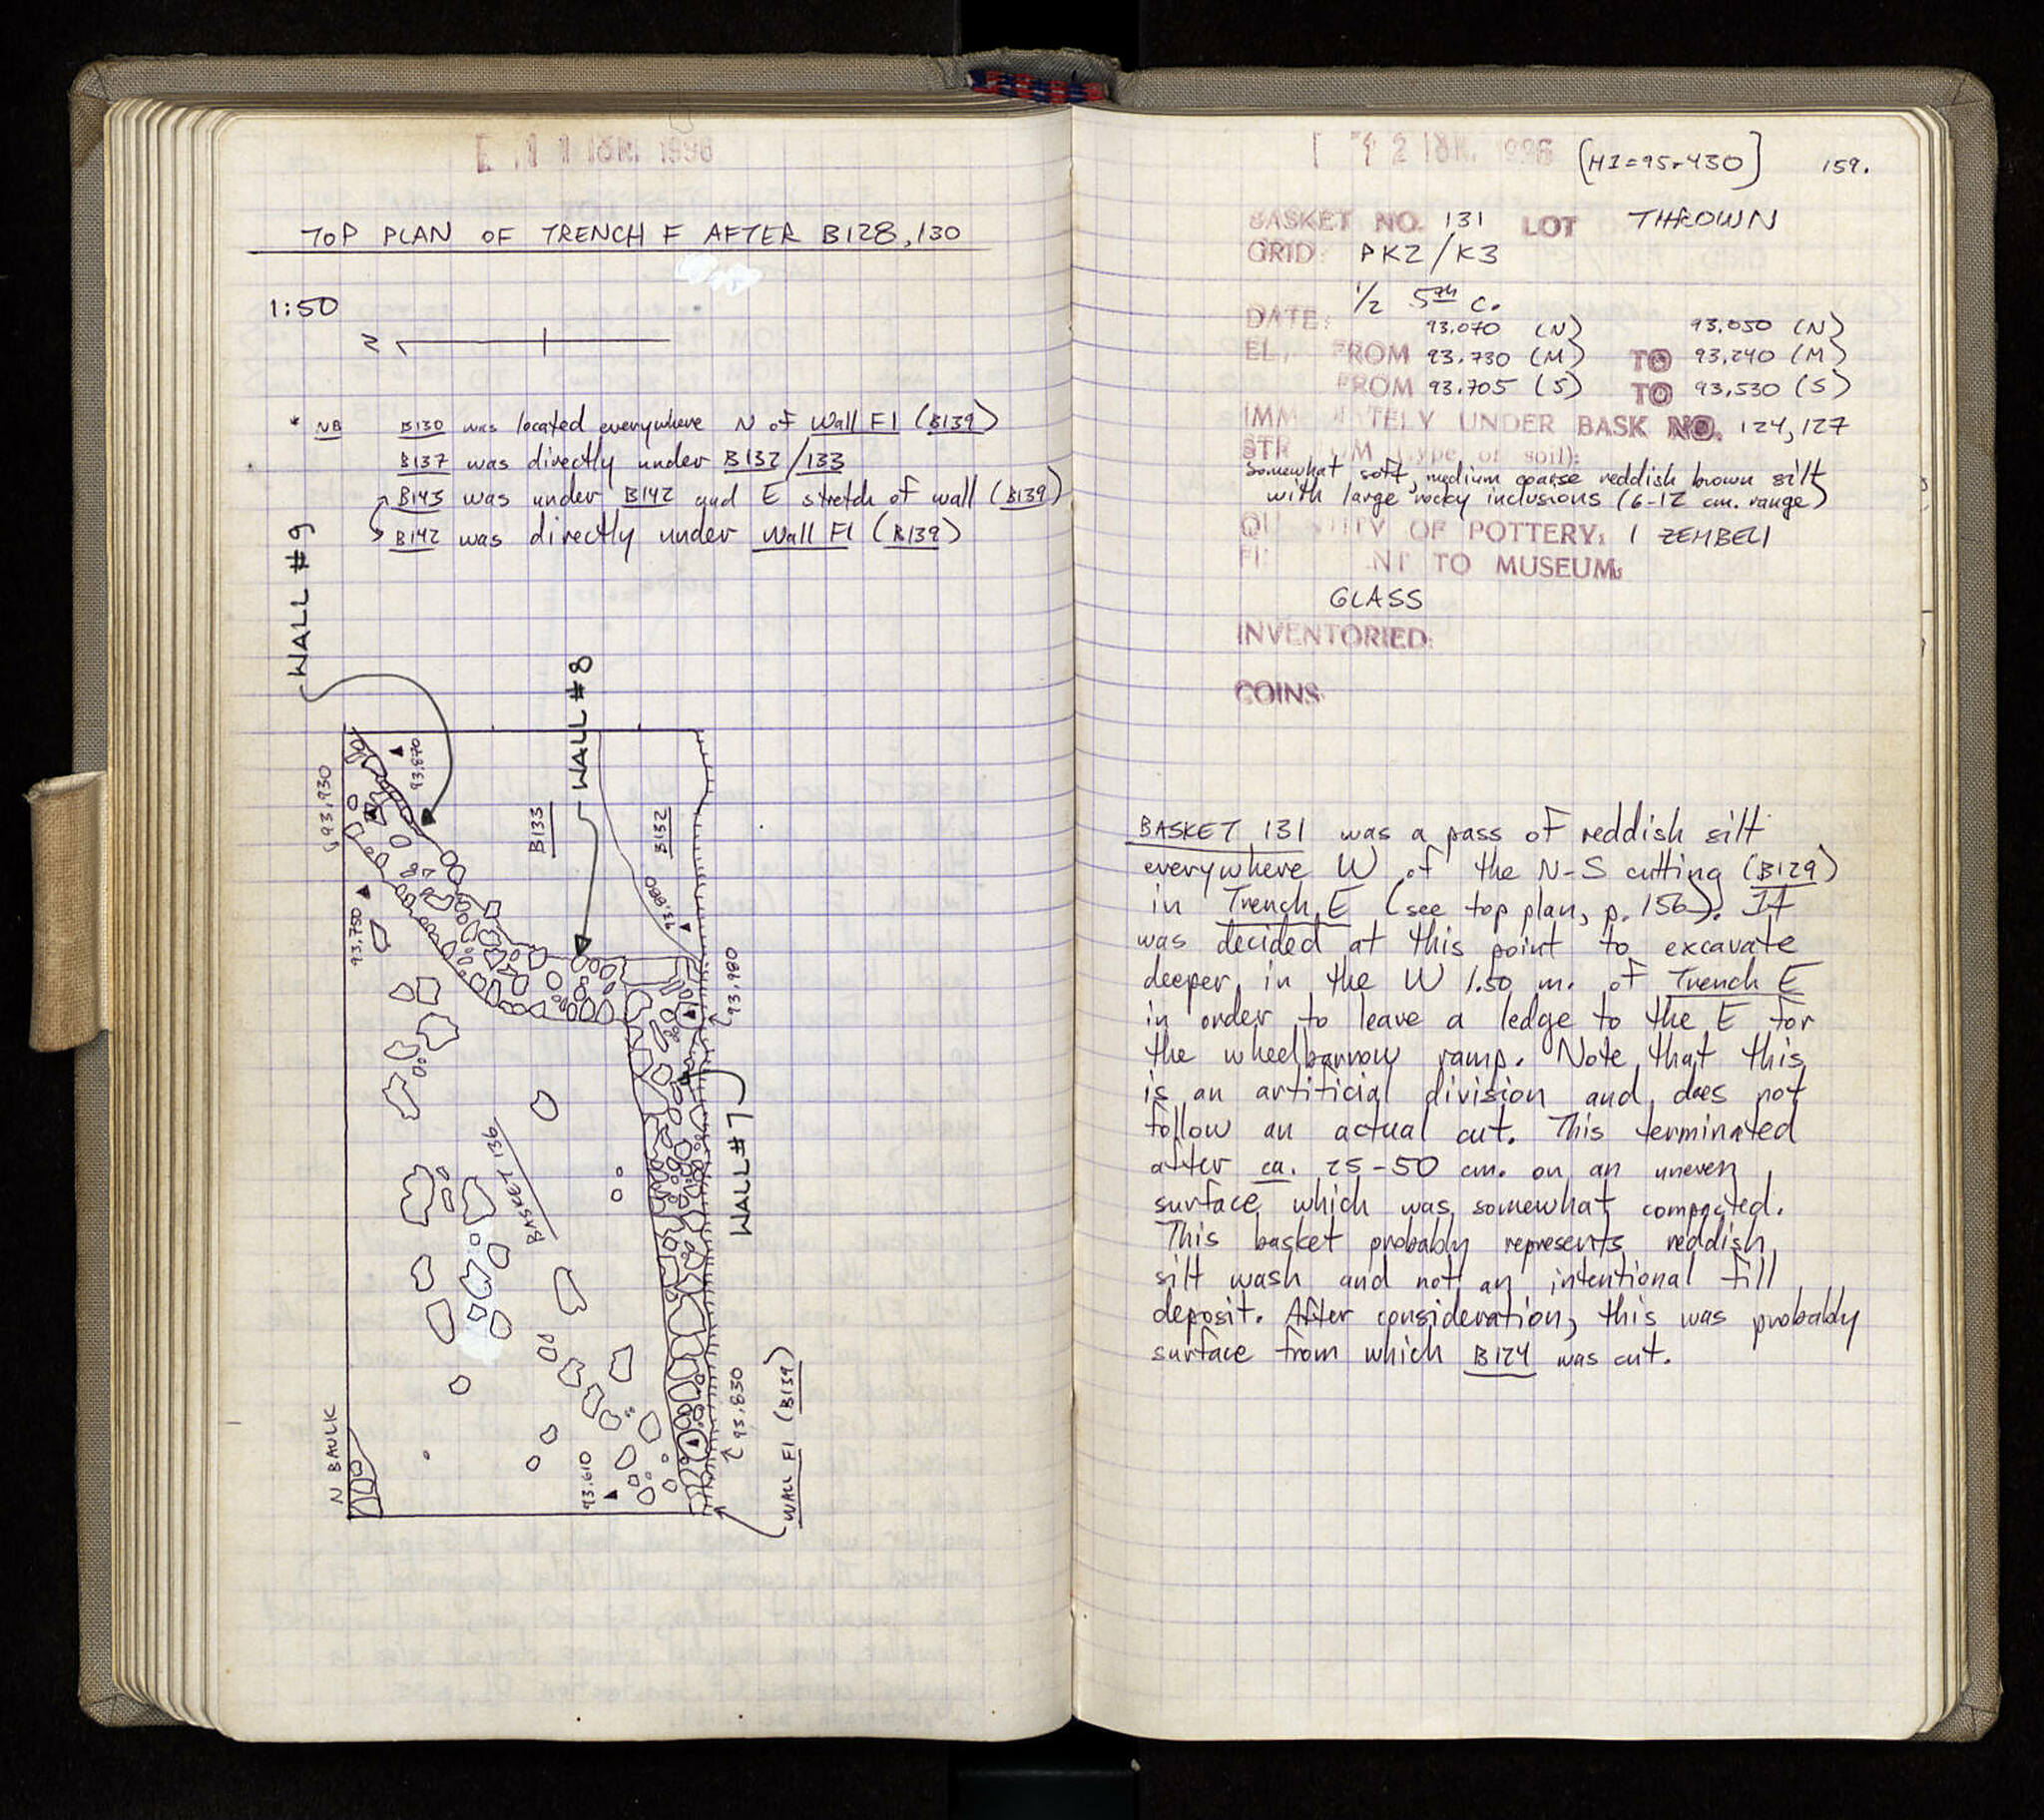 11 ΙΟΥΝ. 1996
TOP PLAN OF TRENCH F AFTER B128, 130
1:50
N
* NB B130 was located everywhere N of Wall F1 (B139)
B137 was directly under B132/133
B143 was under B142 and E stretch of wall (B139)
B142 was directly under Wall F1 (B139)
WALL #9
WALL #8
93.930
93.870
B133
B132
93.750
93.880
93.980
WALL #7
BASKET 136
N BAULK
93.610
93.830
WALL F1 (B139)
12 ΙΟΥΝ. 1996 [HI=95.430] 159.
BASKET NO. 131 LOT THROWN
GRID: PKZ/K3
DATE: 1/2 5th c.
93.070 (N) 93.050 (N)
EL. FROM 93.730 (M) TO 93.240 (M)
FROM 93.705 (S) TO 93.530 (S)
IMM TELY UNDER BASK NO. 124, 127
STR UM (type of soil):
somewhat soft, medium coarse reddish brown silt
with large rocky inclusions (6-12 cm. range)
QU TITY OF POTTERY: 1 ZEMBELI
FI NT TO MUSEUM:
GLASS
INVENTORIED:
COINS
BASKET 131 was a pass of reddish silt
everywhere W of the N-S cutting (B129)
in Trench E (see top plan, p. 156). It
was decided at this point to excavate
deeper in the W 1.50 m. of Trench E
in order to leave a ledge to the E for
the wheelbarrow ramp. Note that this
is an artificial division and does not
follow an actual cut. This terminated
after ca. 25-50 cm. on an uneven
surface which was somewhat compacted.
This basket probably represents reddish
silt wash and not an intentional fill
deposit. After consideration, this was probably
surface from which B124 was cut.